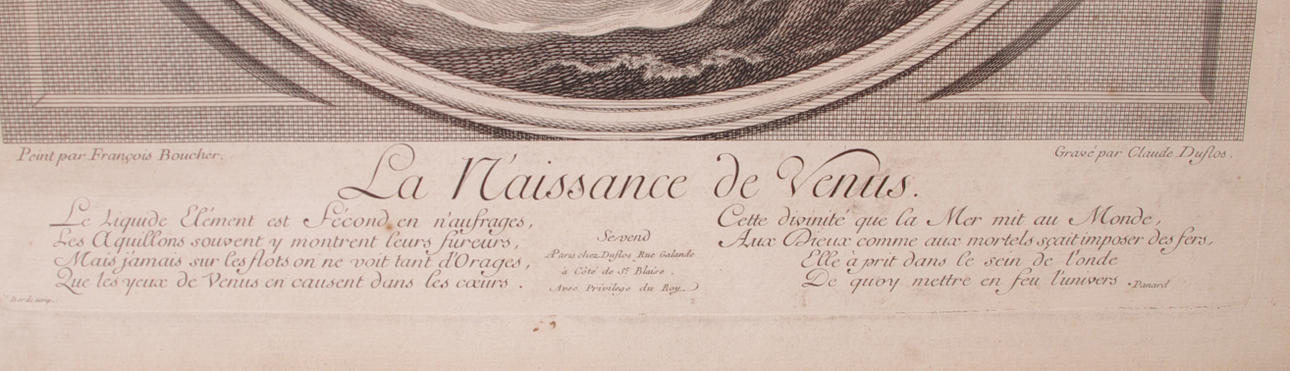 Peint par François Boucher.
Gravé par Claude Duflos.
La Naissance de Venus.
Le Liquide Elément est Fécond en n'aufrages,
Les Aquillons souvent y montrent leurs fureurs,
Mais jamais sur les flots on ne voit tant d'Orages,
Que les yeux de Venus en causent dans les cœurs.
Se vend
A Paris chez Duflos Rue Galande
à Côté de St. Blaise.
Avec Privilege du Roy.
Cette divinité que la Mer mit au Monde,
Aux Dieux comme aux mortels sçait imposer des fers,
Elle à prit dans le sein de l'onde
De quoy mettre en feu l'univers.
Panard